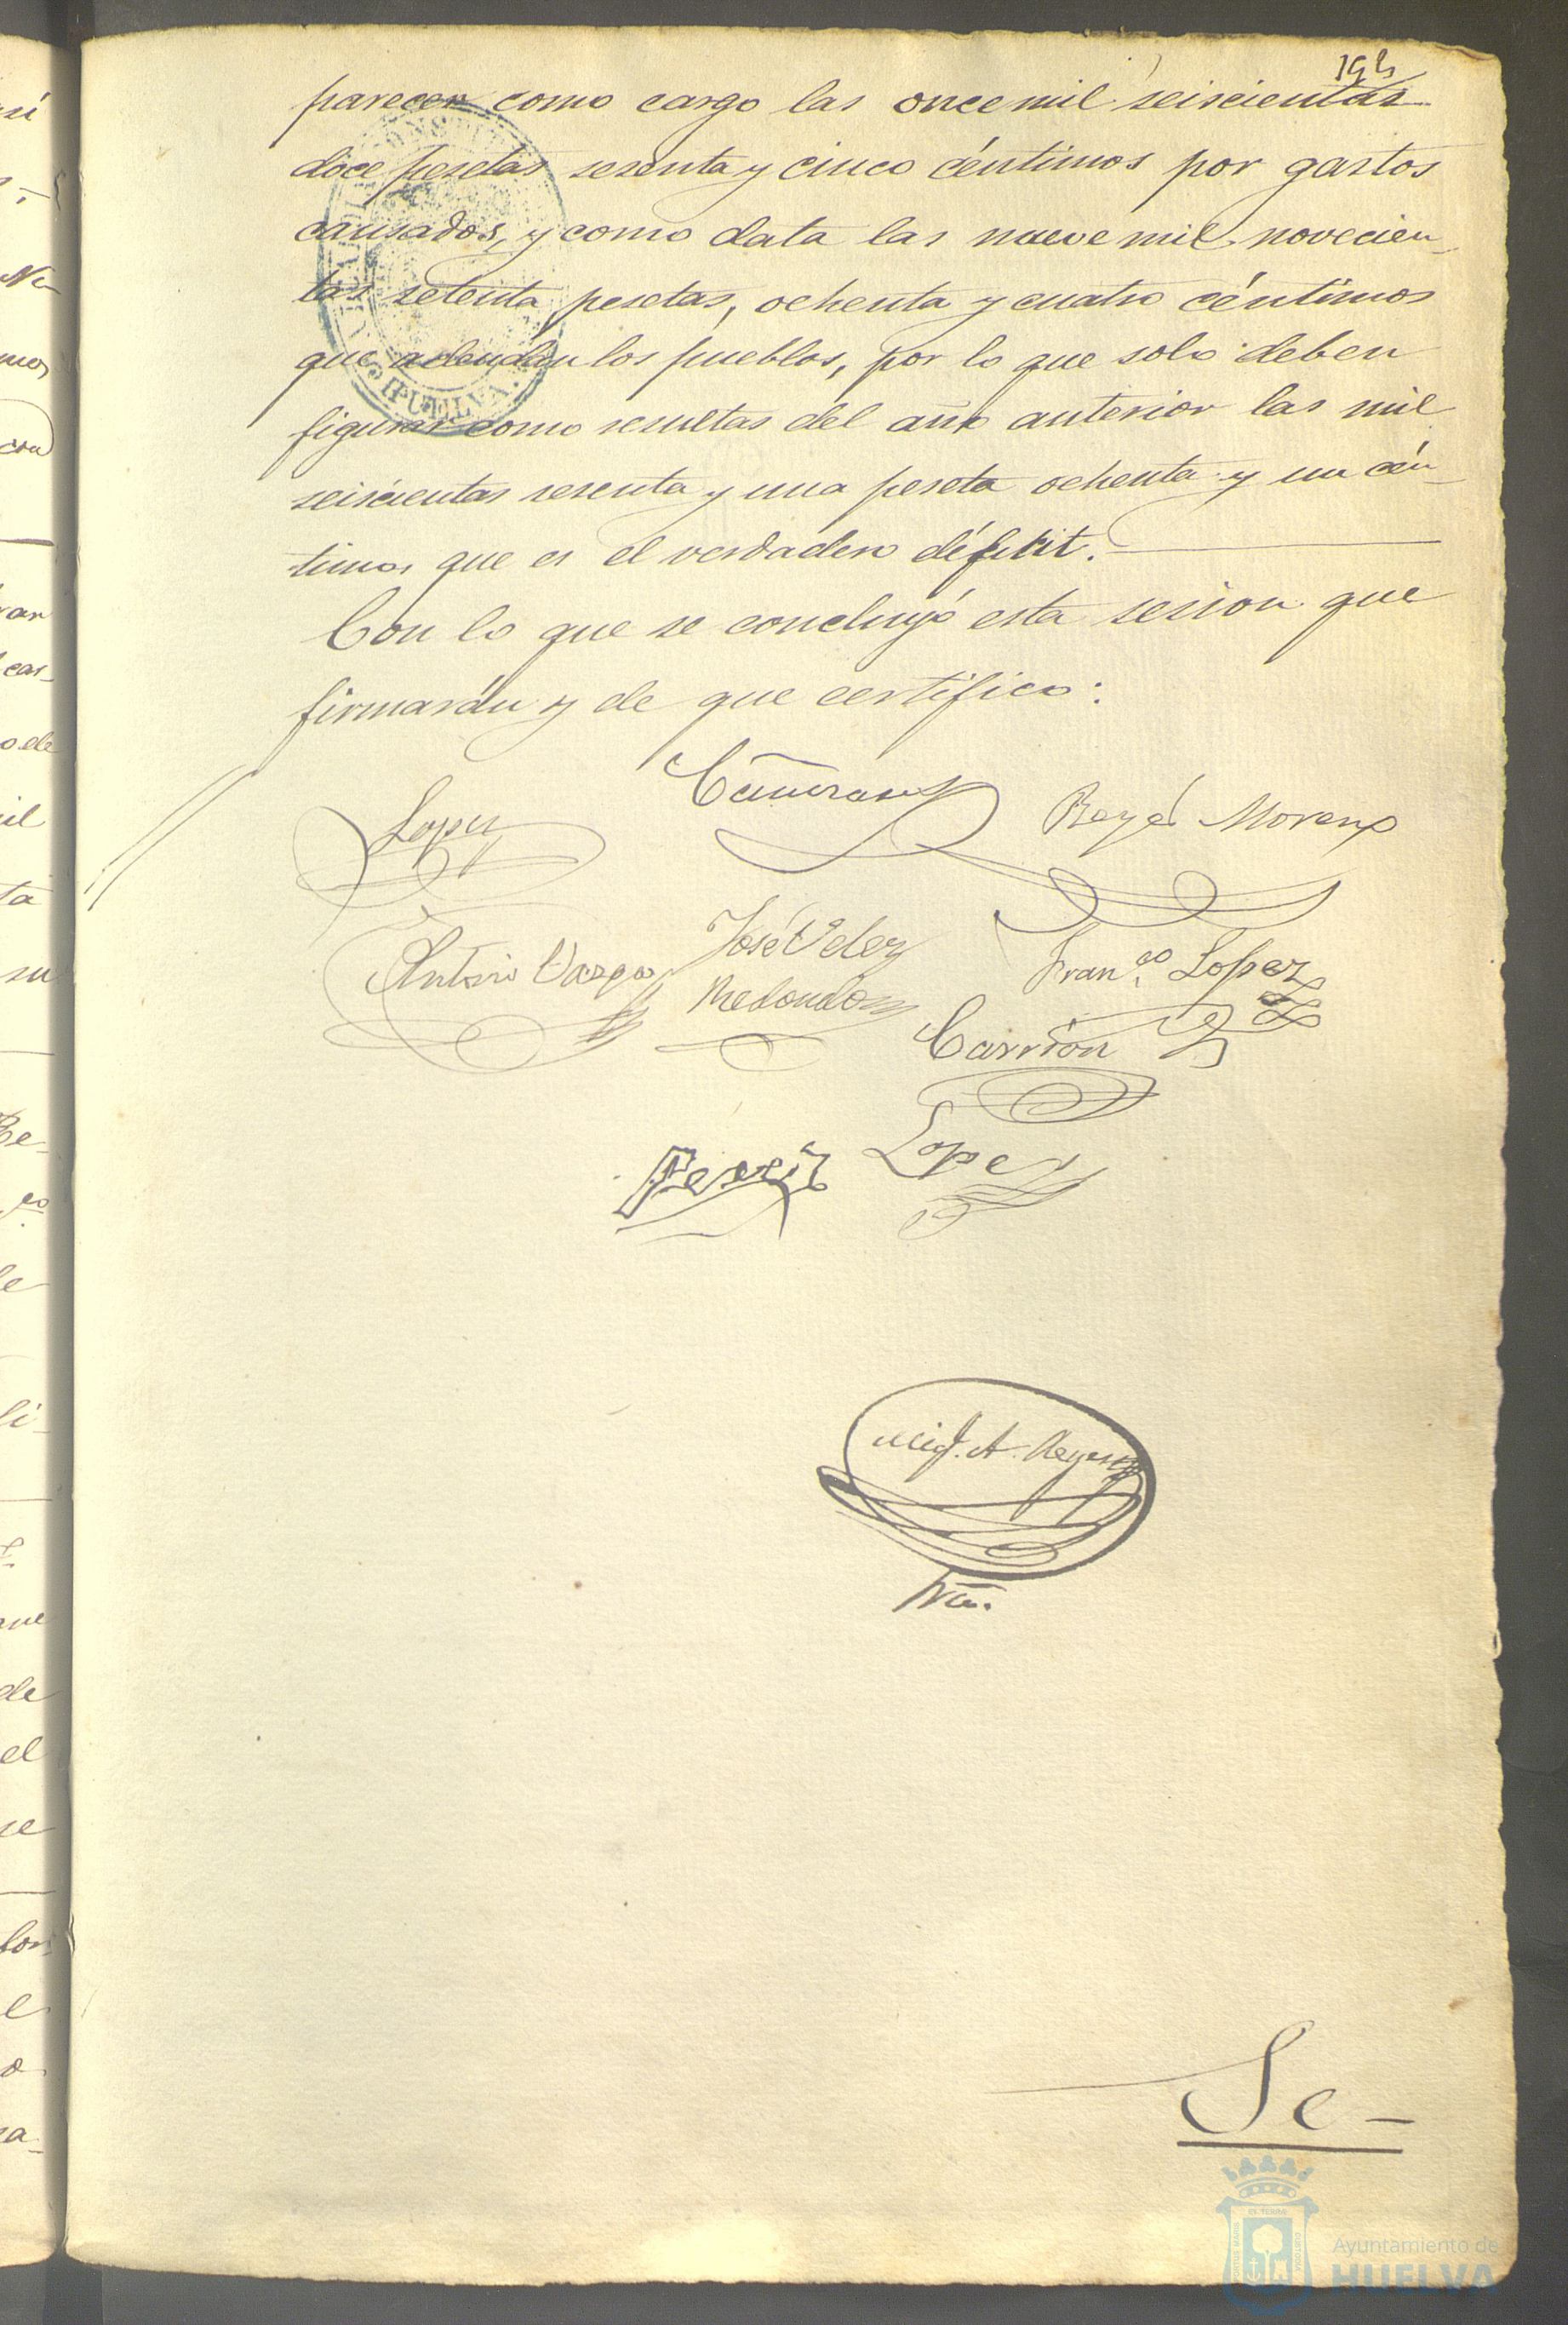 parecer como cargo las once mil seiscientas
doce pesetas sesenta y cinco céntimos por gastos
causados, y como data las nueve mil novecien
tas setenta pesetas, ochenta y cuatro céntimos
que adeudan los pueblos, por lo que solo deben
figurar como resultas del año anterior las mil
seiscientas sesenta y una peseta ochenta y un cén-
timos que es el verdadero déficit.
Con lo que se concluyó esta sesion que
firmarán y de que certifico:
Lopez
Rey Moreno
Antonio Vargas
José Velez
Redondo
Fran.co Lopez
Carrion
Lopez
Perez
A. Reyes
Srio.
Se-
Ayuntamiento de
HUELVA